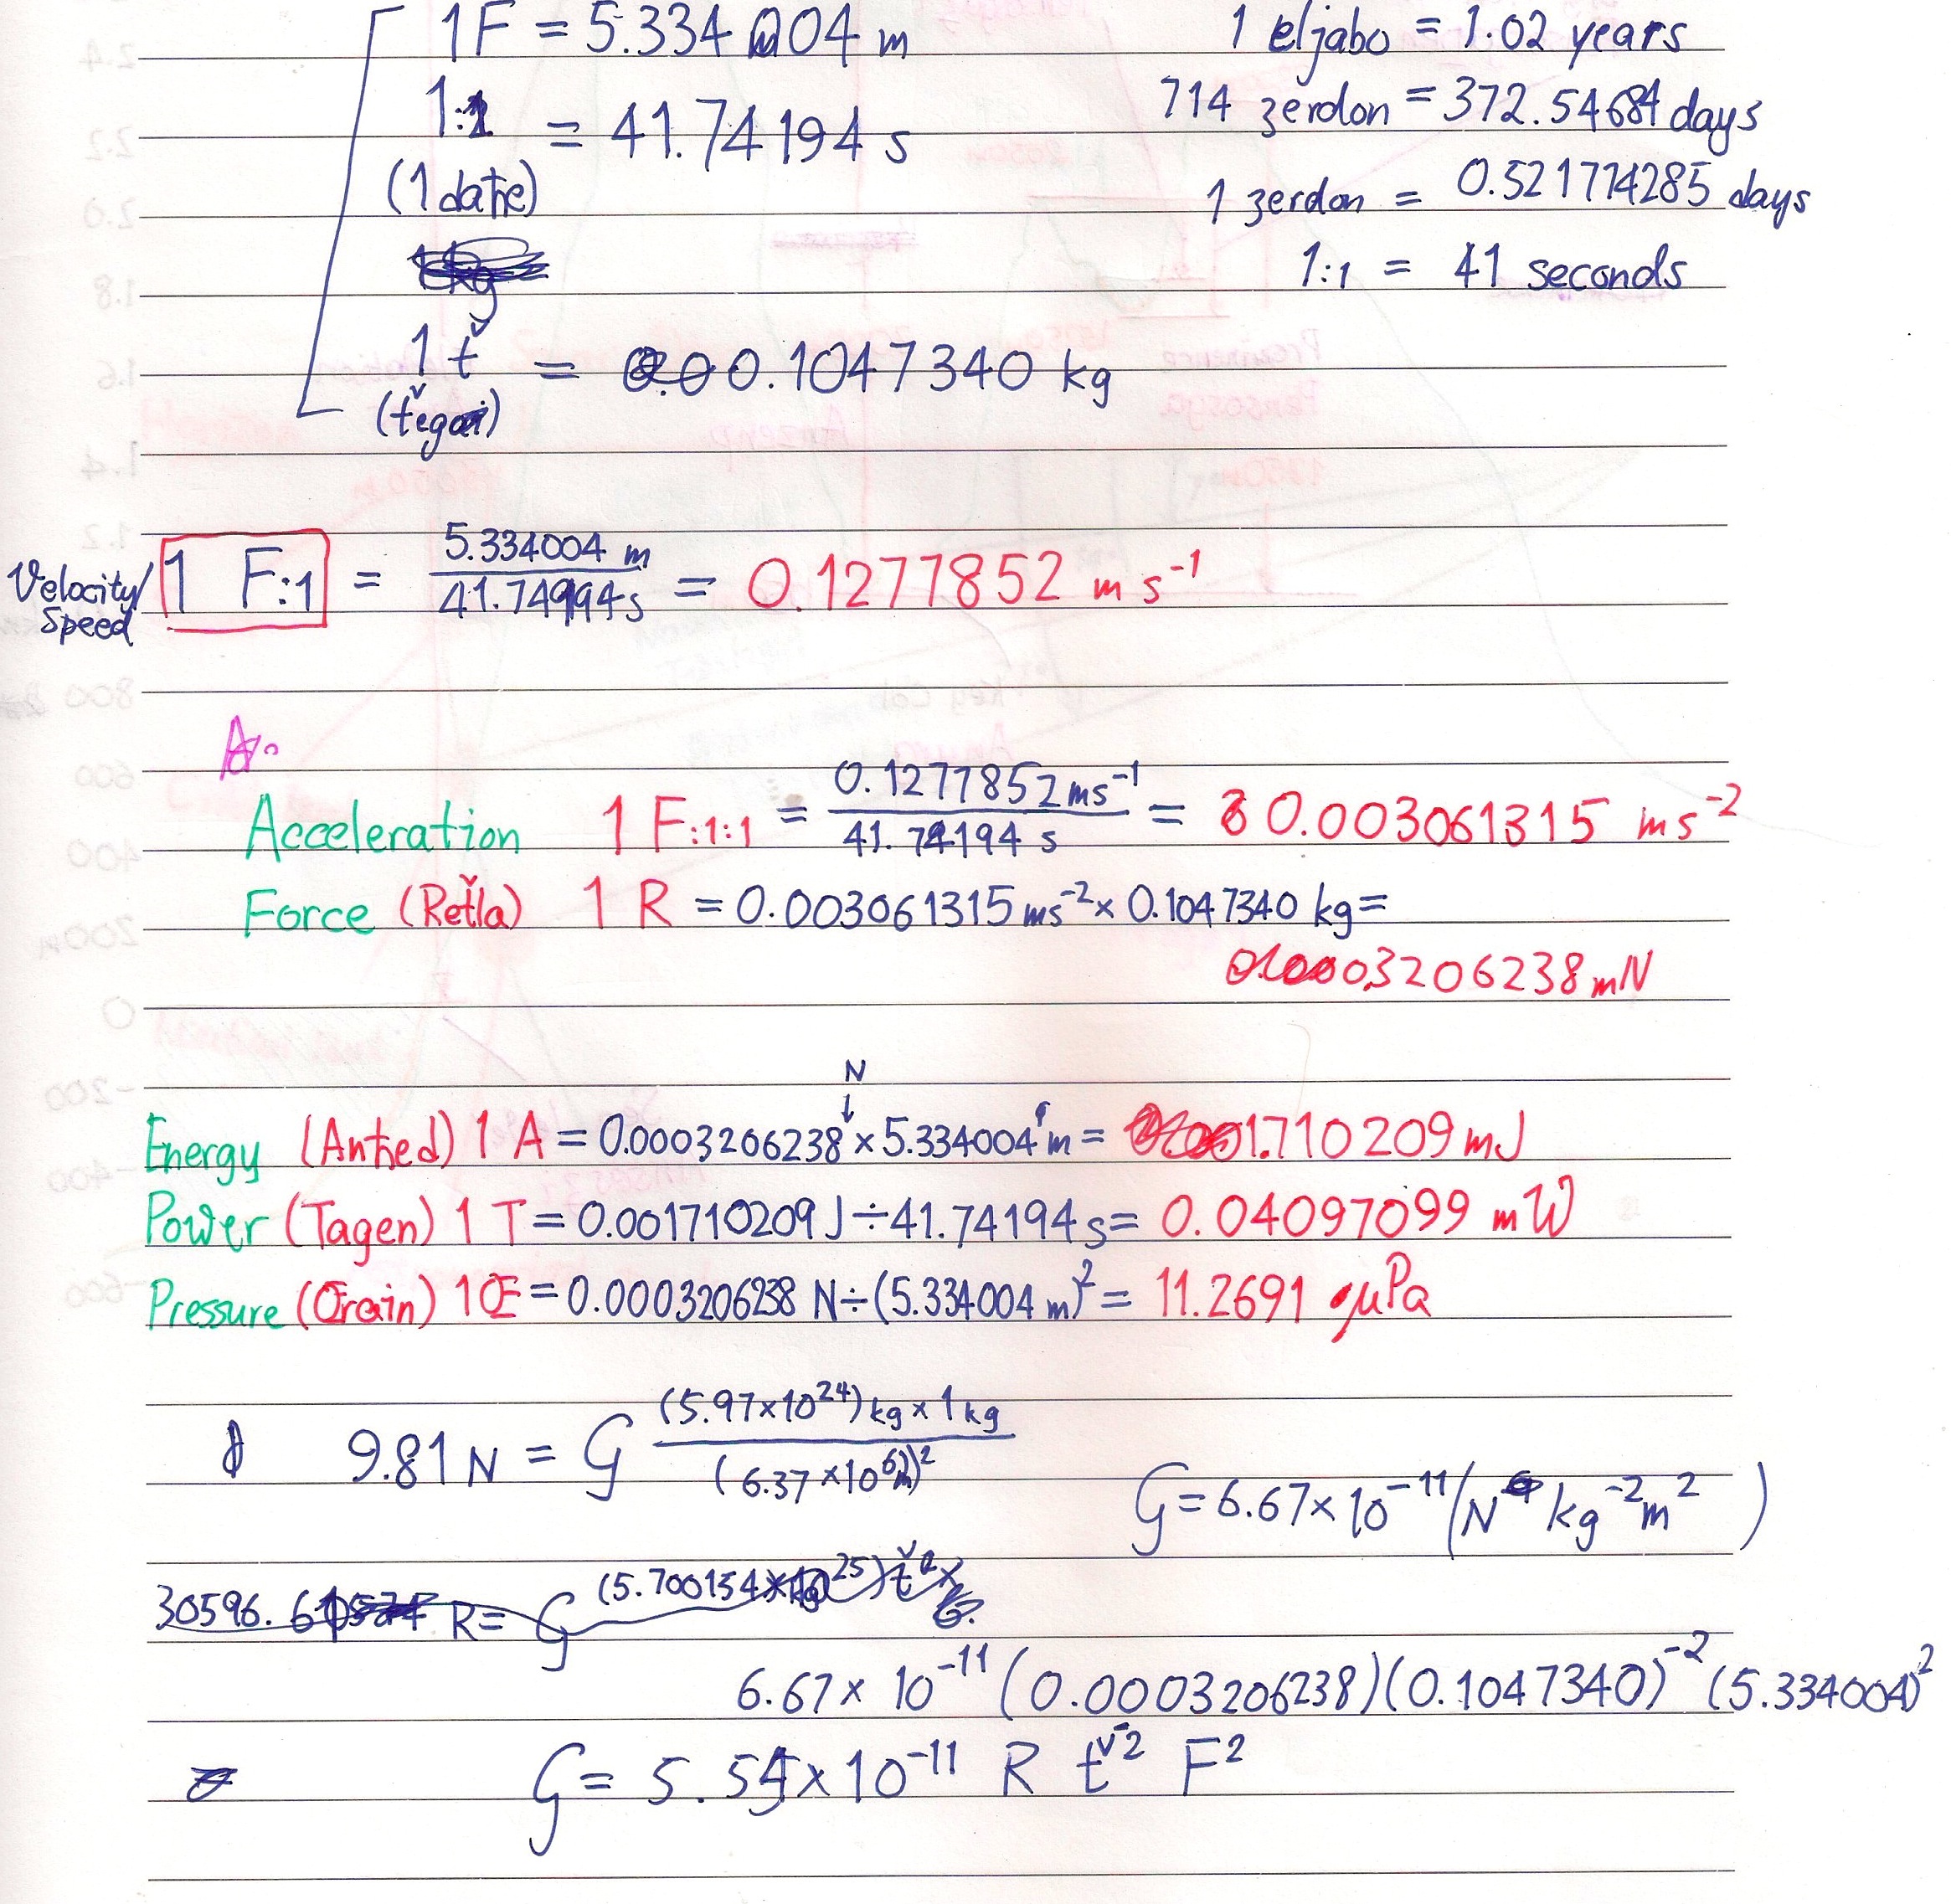 1F = 5.334004 m
1 eljabo = 1.02 years
1:1 = 41.74194 s
(1 datħe)
714 zerdon = 372.54684 days
1 zerdon = 0.521774285 days
1:1 = 41 seconds
1 ť = 0.1047340 kg
Velocity/ Speed 1 F:1 = 5.334004 m / 41.74194 s = 0.1277852 m s⁻¹
A
Acceleration 1 F:1:1 = 0.1277852 ms⁻¹ / 41.74194 s = 0.003061315 ms⁻²
Force (Reťla) 1 R = 0.003061315 ms⁻² × 0.1047340 kg =
0.3206238 mN
N
↓
Energy (Antħed) 1 A = 0.0003206238 × 5.334004 m = 1.710209 mJ
Power (Tagen) 1 T = 0.001710209 J ÷ 41.74194 s = 0.04097099 mW
Pressure (Œrain) 1Œ = 0.0003206238 N ÷ (5.334004 m)² = 11.2691 μPa
9.81 N = G (5.97×10²⁴) kg × 1 kg / (6.37×10⁶m)²
G = 6.67 × 10⁻¹¹ (N kg⁻² m²)
30596. R = G (5.700154×10²⁵) ť
6.67 × 10⁻¹¹ (0.0003206238)(0.1047340)⁻² (5.334004)²
G = 5.54 × 10⁻¹¹ R ť⁻² F²